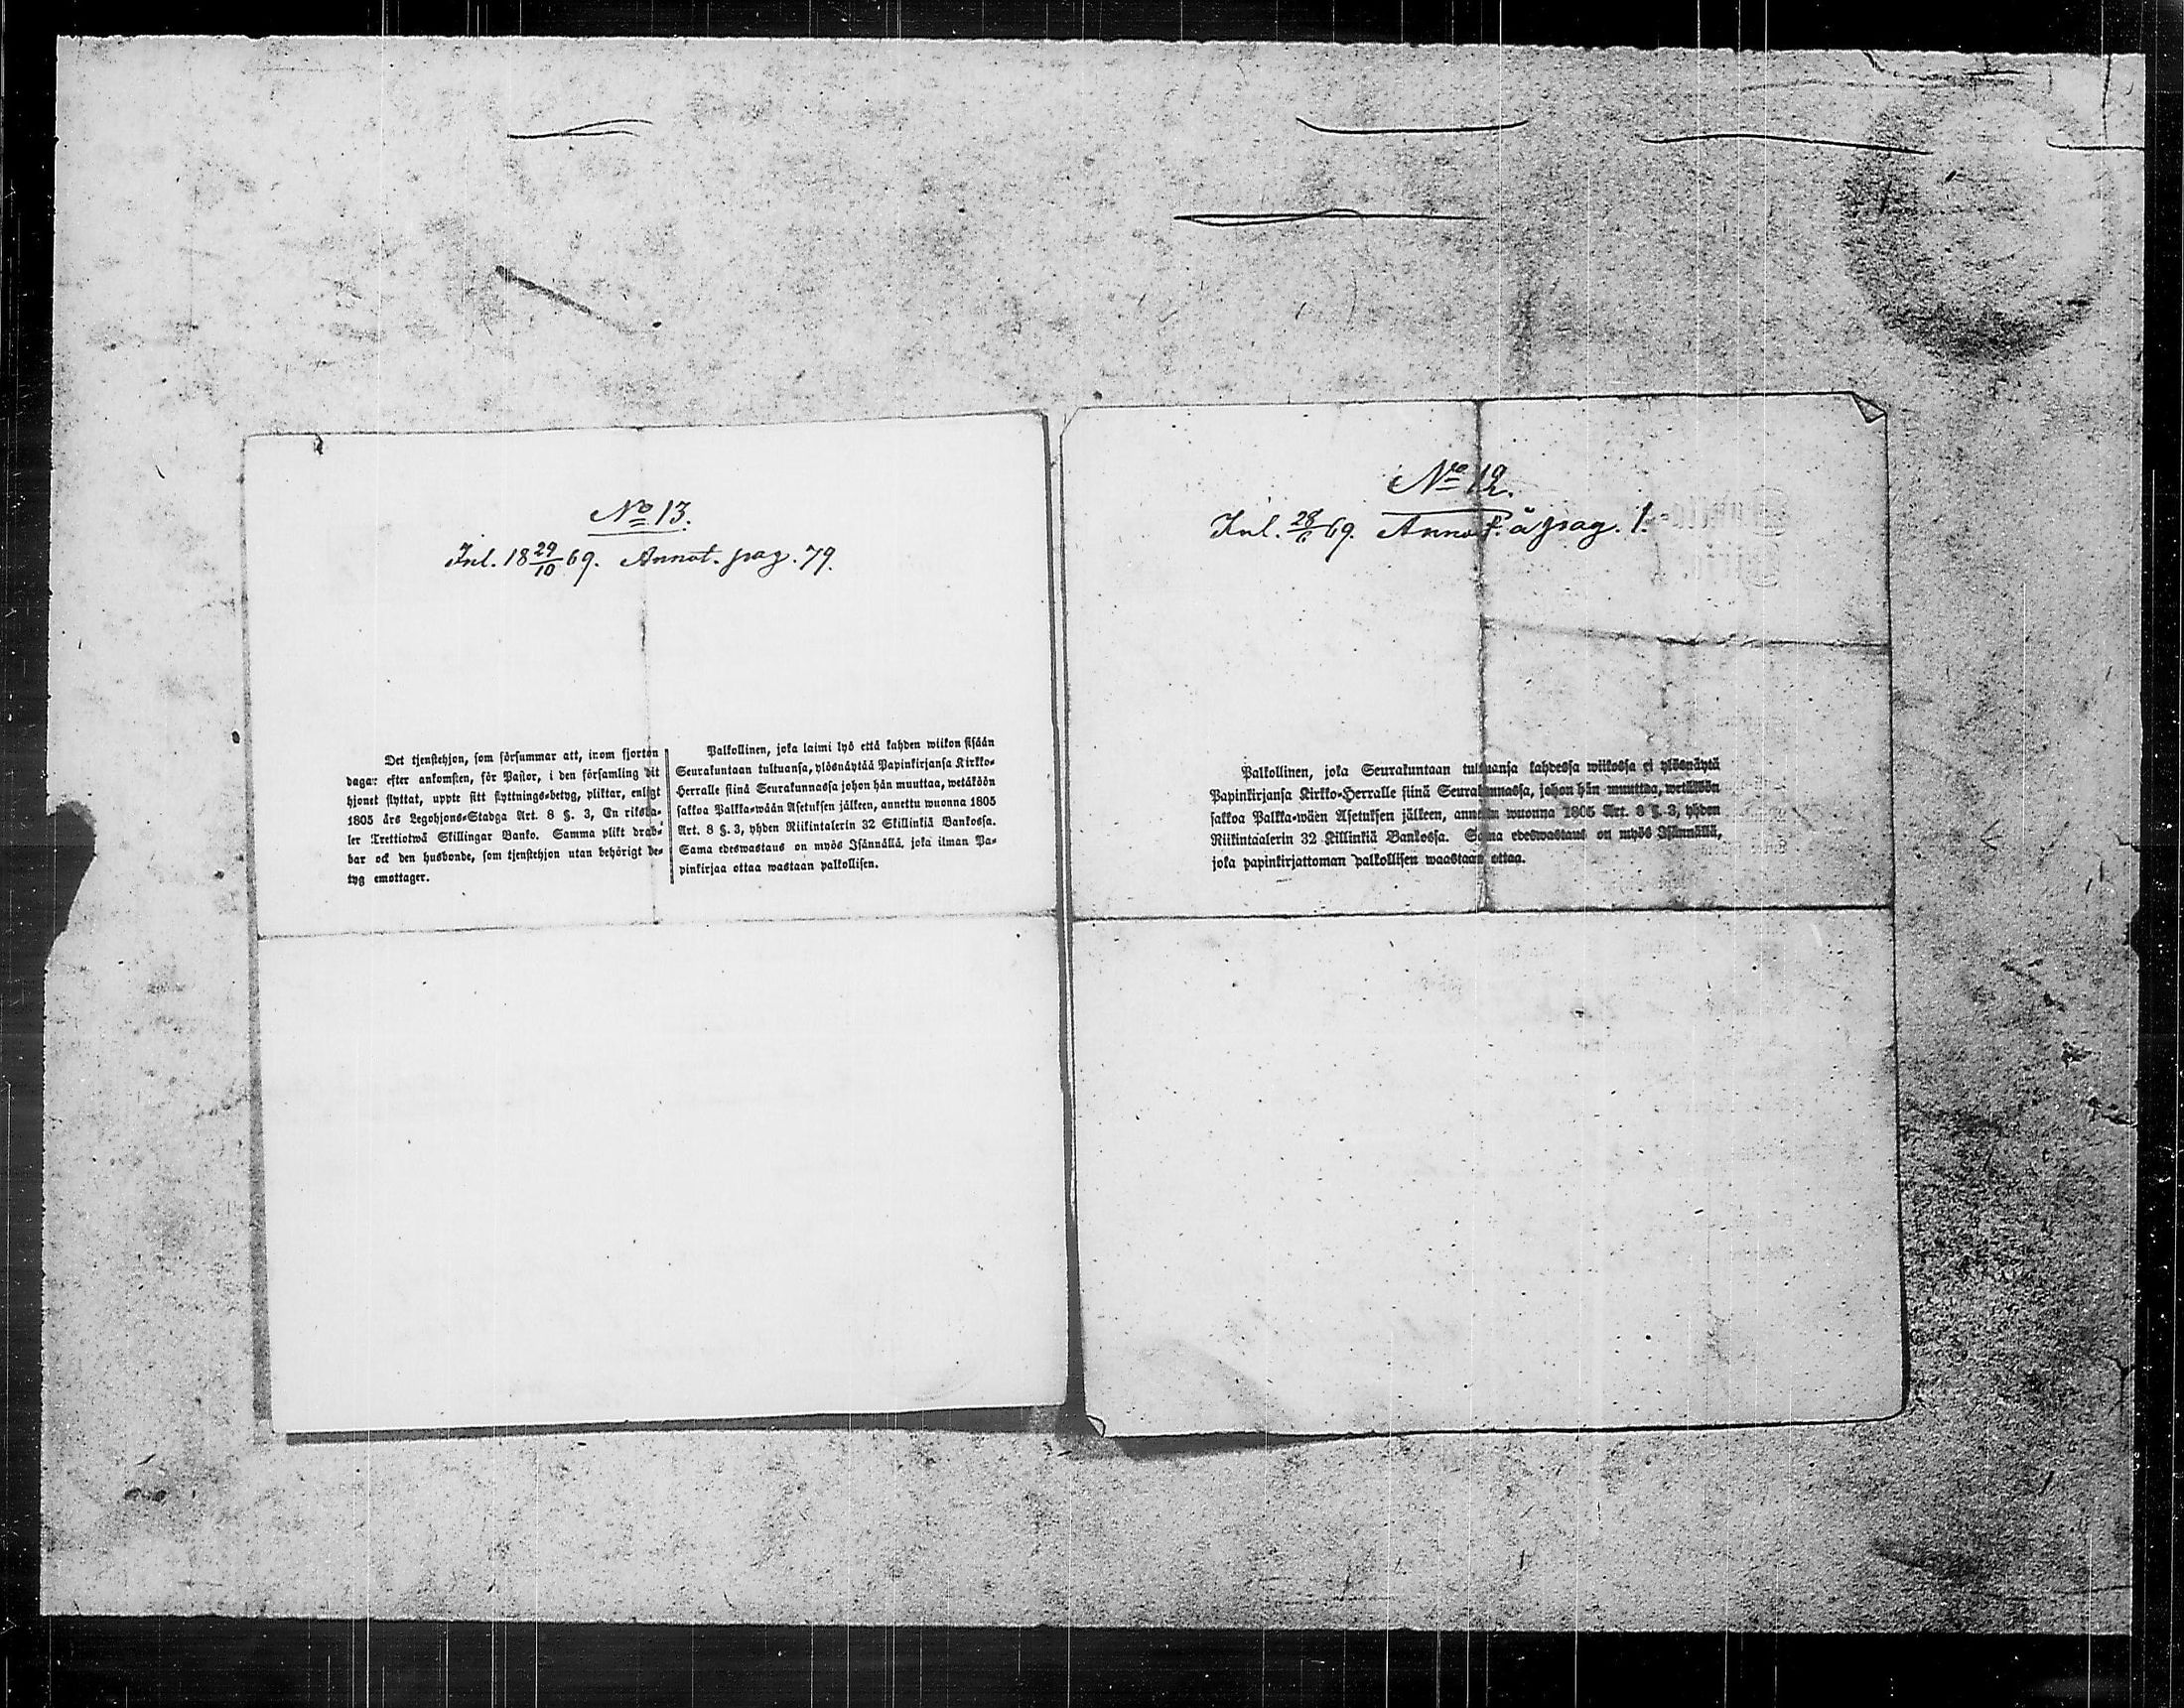 No 13.
Inl. 18 29/10 69. Annot. pag. 79.
Det tjenstehjon, som försummar att, inom fjorton
dagar efter ankomsten, för Pastor, i den församling dit
hjonet flyttat, uppte sitt flyttnings-betyg, pliktar, enligt
1805 års Legohjons-Stadga Art. 8 §. 3, En riksda-
ler Trettiotwå Skillingar Banko. Samma plikt drab-
bar ock den husbonde, som tjenstehjon utan behörigt be-
tyg emottager.
Palkollinen, joka laimi lyö että kahden wiikon sisään
Seurakuntaan tultuansa, ylösnäytää Papinkirjansa Kirkko-
Herralle siinä Seurakunnassa johon hän muuttaa, wetäköön
sakkoa Palkka-wään Asetuksen jälkeen, annettu wuonna 1805
Art. 8 §. 3, yhden Riikintalerin 32 Skillinkiä Bankossa.
Sama edeswastaus on myös Isännällä, joka ilman Pa-
pinkirjaa ottaa wastaan palkollisen.
No 12.
Inl. 28/ 69. Annot. å pag. 1.
Palkollinen, joka Seurakuntaan tultuansa kahdessa wiikossa ei ylösnäytä
Papinkirjansa Kirkko-Herralle siinä Seurakunnassa, johon hän muuttaa, wetäköön
sakkoa Palkka-wäen Asetuksen jälkeen, annetun wuonna 1805 Art. 8 §. 3, yhden
Riikintaalerin 32 Killinkiä Bankossa. Sama edeswastaus on myös Isännällä,
joka papinkirjattoman palkollisen waastaan ottaa.